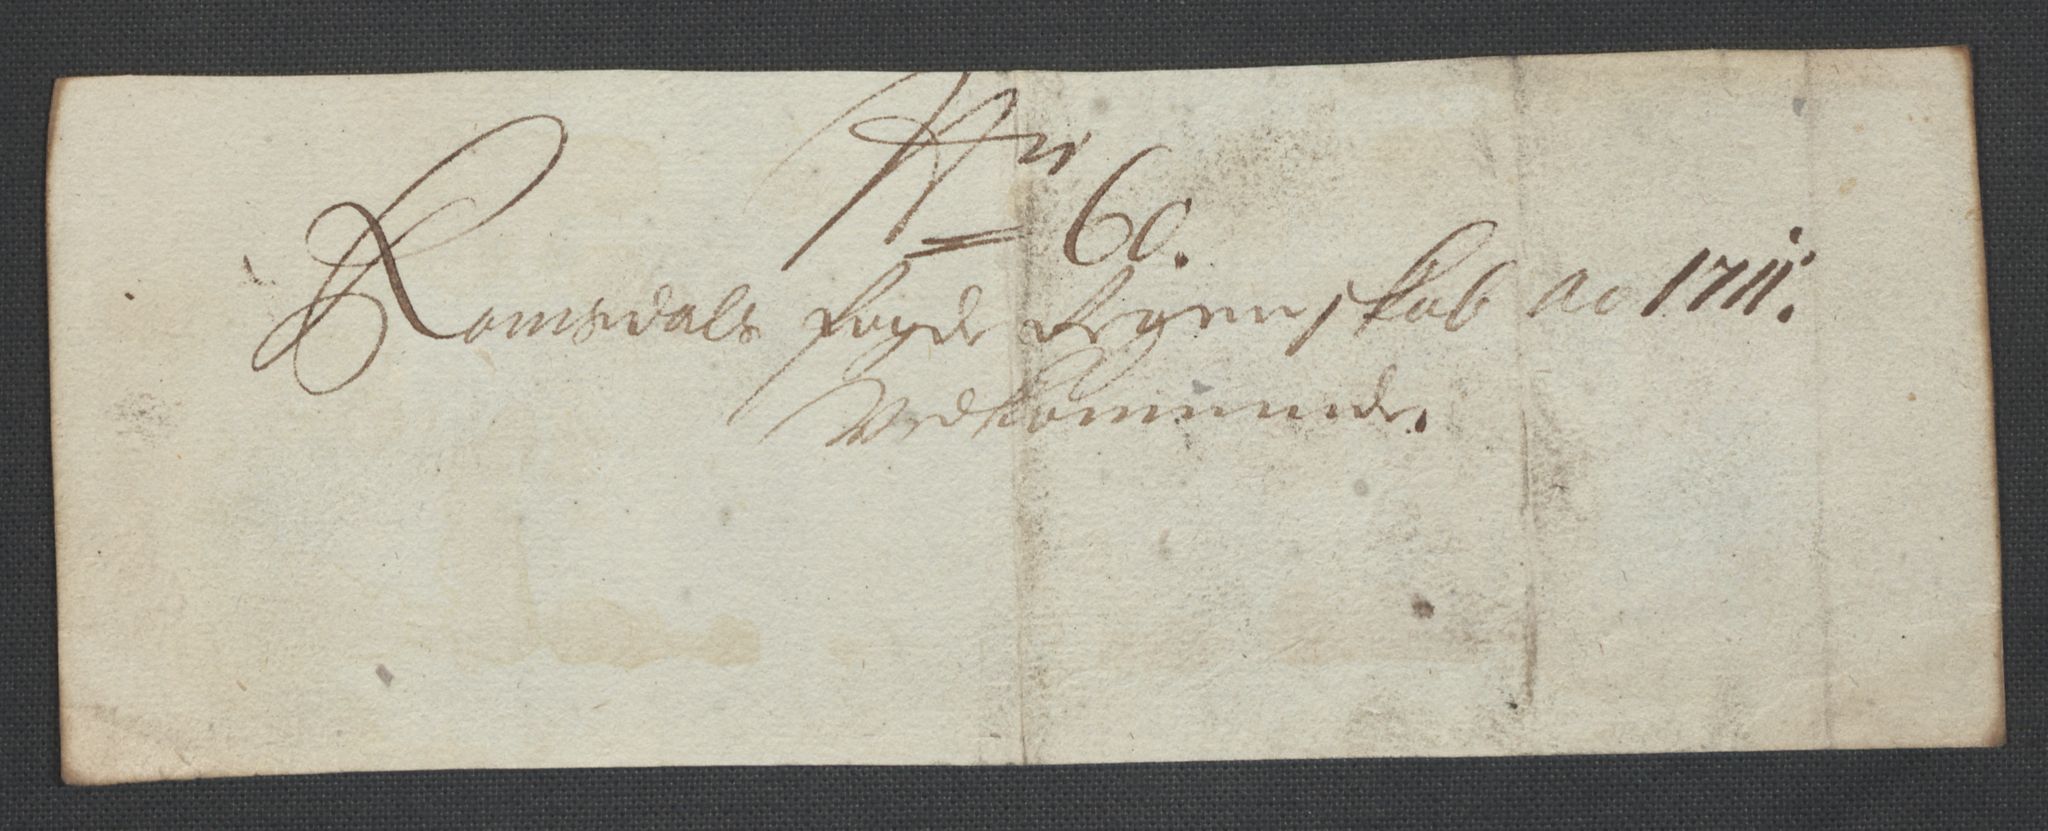 No 60.
Romsdals fogderegenskab Ao 1711.
Vedkommende.